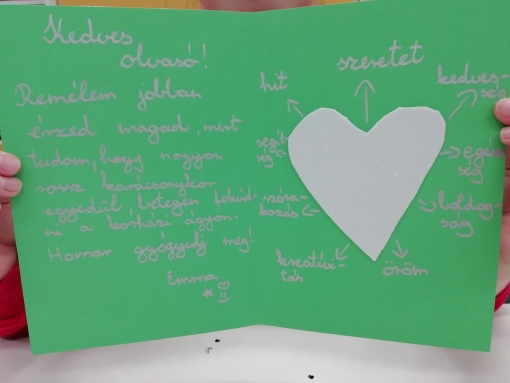 Kedves
olvasó!
Remélem jobban
érzed magad, mert
tudom, hogy nagyon
rossz karácsonykor
egyedül betegen feküd-
ni a kórházi ágyon.
Hamar gyógyulj meg!
Emma
szeretet
hit
kedves-
ség
segít-
ség
egész-
ség
szóra-
kozás
boldog-
ság
kreativi-
tás
öröm